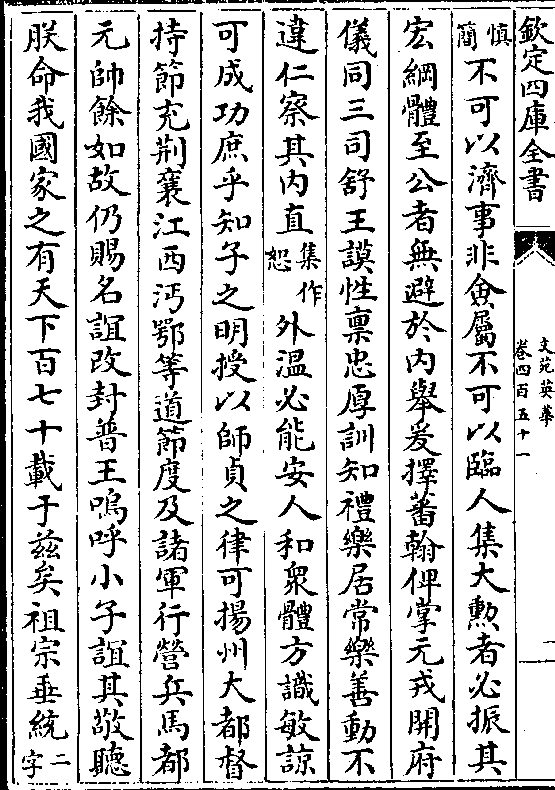 欽定四庫全書
文苑英華
卷四百五十一
慎簡不可以濟事非僉屬不可以臨人集大勲者必振其
宏綱體至公者無避於内舉爰擇蕃翰俾掌元戎開府
儀同三司舒王謨性禀忠厚訓知禮樂居常樂善動不
違仁察其内直集作恕外温必能安人和衆體方識敏諒
可成功庶乎知子之明授以師貞之律可揚州大都督
持節充荆襄江西沔鄂等道節度及諸軍行營兵馬都
元帥餘如故仍賜名誼改封普王嗚呼小子誼其敬聽
朕命我國家之有天下百七十載于兹矣祖宗垂統二字